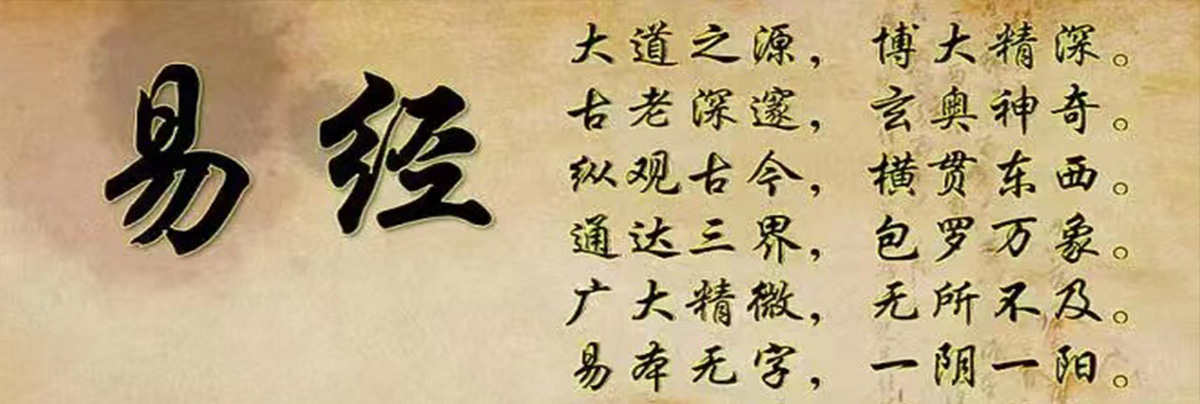 易经
大道之源，博大精深。
古老深邃，玄奥神奇。
纵观古今，横贯东西。
通达三界，包罗万象。
广大精微，无所不及。
易本无字，一阴一阳。